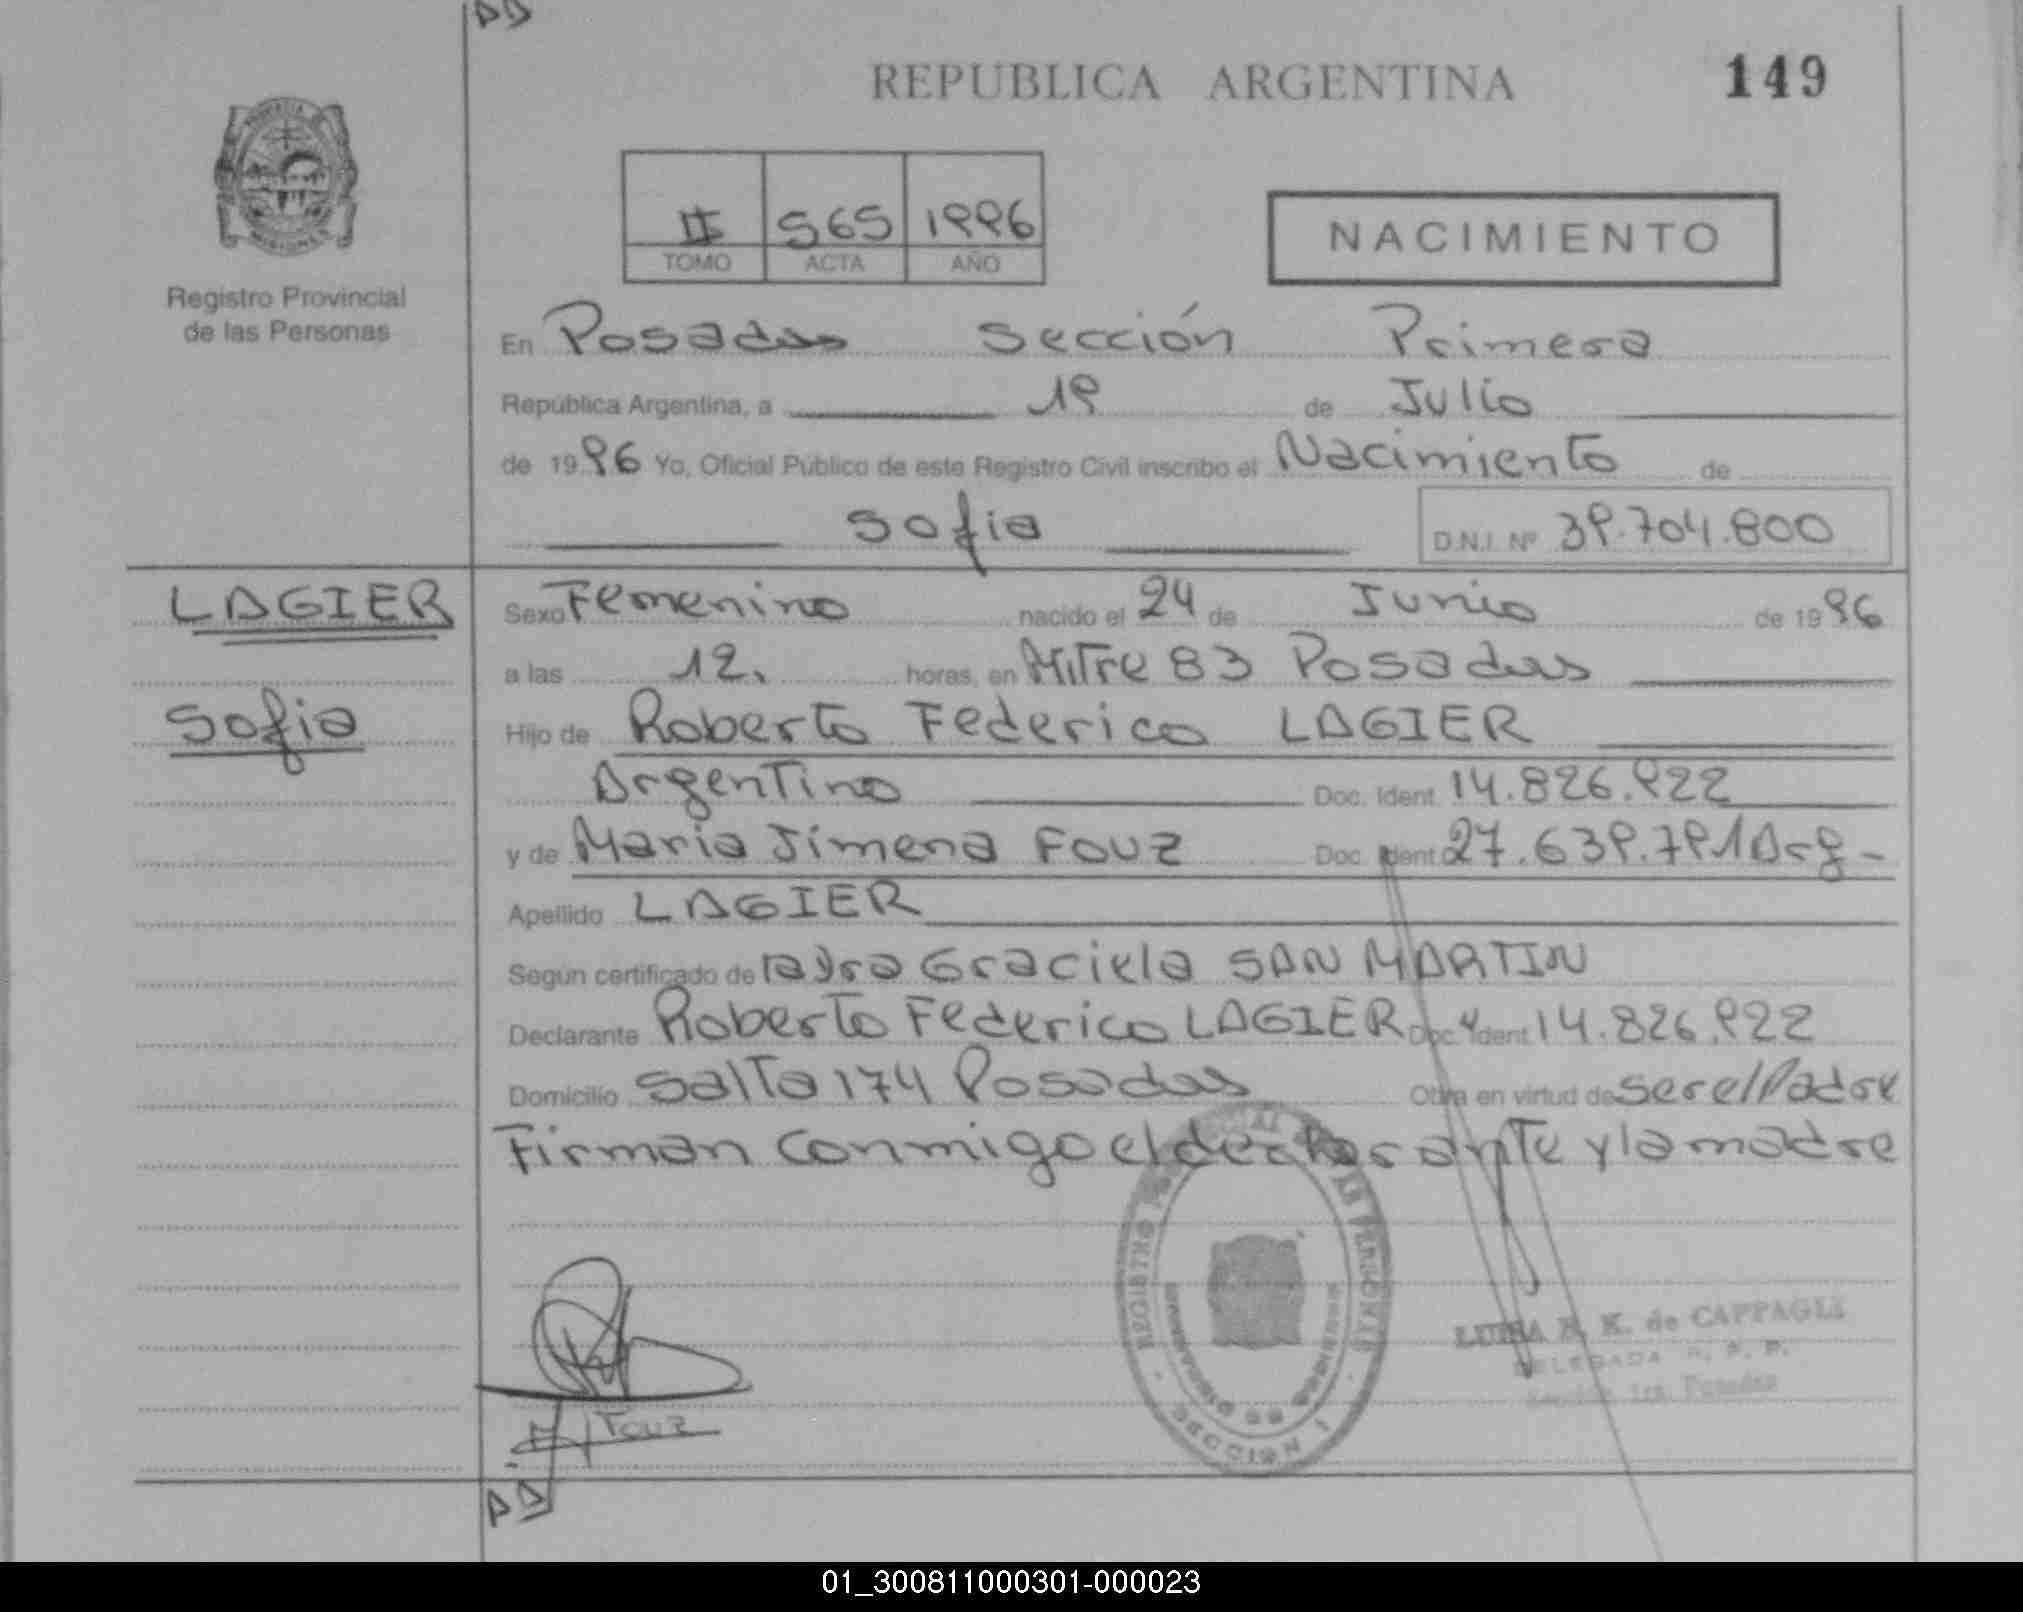 REPUBLICA ARGENTINA
149
II 565 1996
TOMO ACTA AÑO
NACIMIENTO
MISIONES
Registro Provincial
de las Personas
En Posadas Sección Primera
República Argentina, a 19 de Julio
de 1996 Yo, Oficial Público de este Registro Civil inscribo el Nacimiento de
Sofia
D.N.I. Nº 39.704.800
LAGIER
Sofia
Sexo Femenino nacido el 24 de Junio de 1996
a las 12. horas, en Mitre 83 Posadas
Hijo de Roberto Federico LAGIER
Argentino Doc. Ident. 14.826.922
y de Maria Jimena FOUZ Doc. Ident. 27.639.791 Arg -
Apellido LAGIER
Según certificado de Graciela SAN MARTIN
Declarante Roberto Federico LAGIER Doc. Ident. 14.826.922
Domicilio Salta 174 Posadas Obra en virtud de ser el Padre
Firman conmigo el declarante y la madre
Fouz
REGISTRO DE LAS PERSONAS
SECCION 1
K. de CAPPAGLI
DELEGADA R. P. P.
Sección 1ra. Posadas
01_300811000301-000023